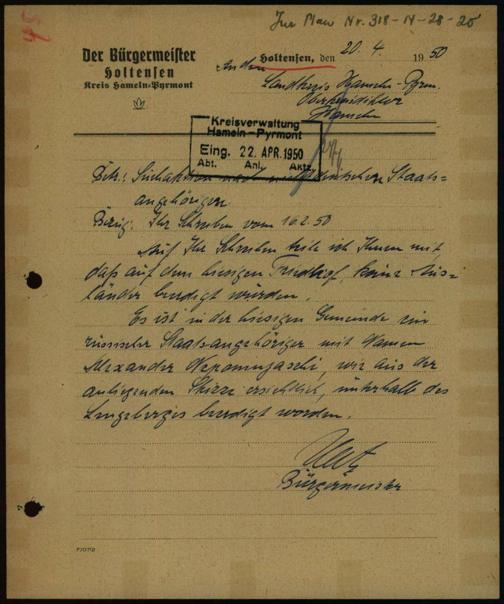 Zur Mau Nr. 318-N-28-25
Der Bürgermeister
Holtensen
Kreis Hameln-Pyrmont
Holtensen, den 20.4. 1950
An den
Landkreis Hameln-Pyrm.
Oberkreisdirektor
Hameln
Kreisverwaltung
Hameln-Pyrmont
Eing. 22. APR. 1950
Abt. Anl. Aktz.
Betr.: Suchaktion nach nichtdeutschen Staats-
angehörigen
Bezug: Ihr Schreiben vom 16.2.50
Auf Ihr Schreiben teile ich Ihnen mit
daß auf dem hiesigen Friedhof keine Aus-
länder beerdigt wurden.
Es ist in der hiesigen Gemeinde ein
russischer Staatsangehöriger mit Namen
Alexander, wie aus der
anliegenden Skizze ersichtlich, unterhalb des
beerdigt worden.
Bürgermeister